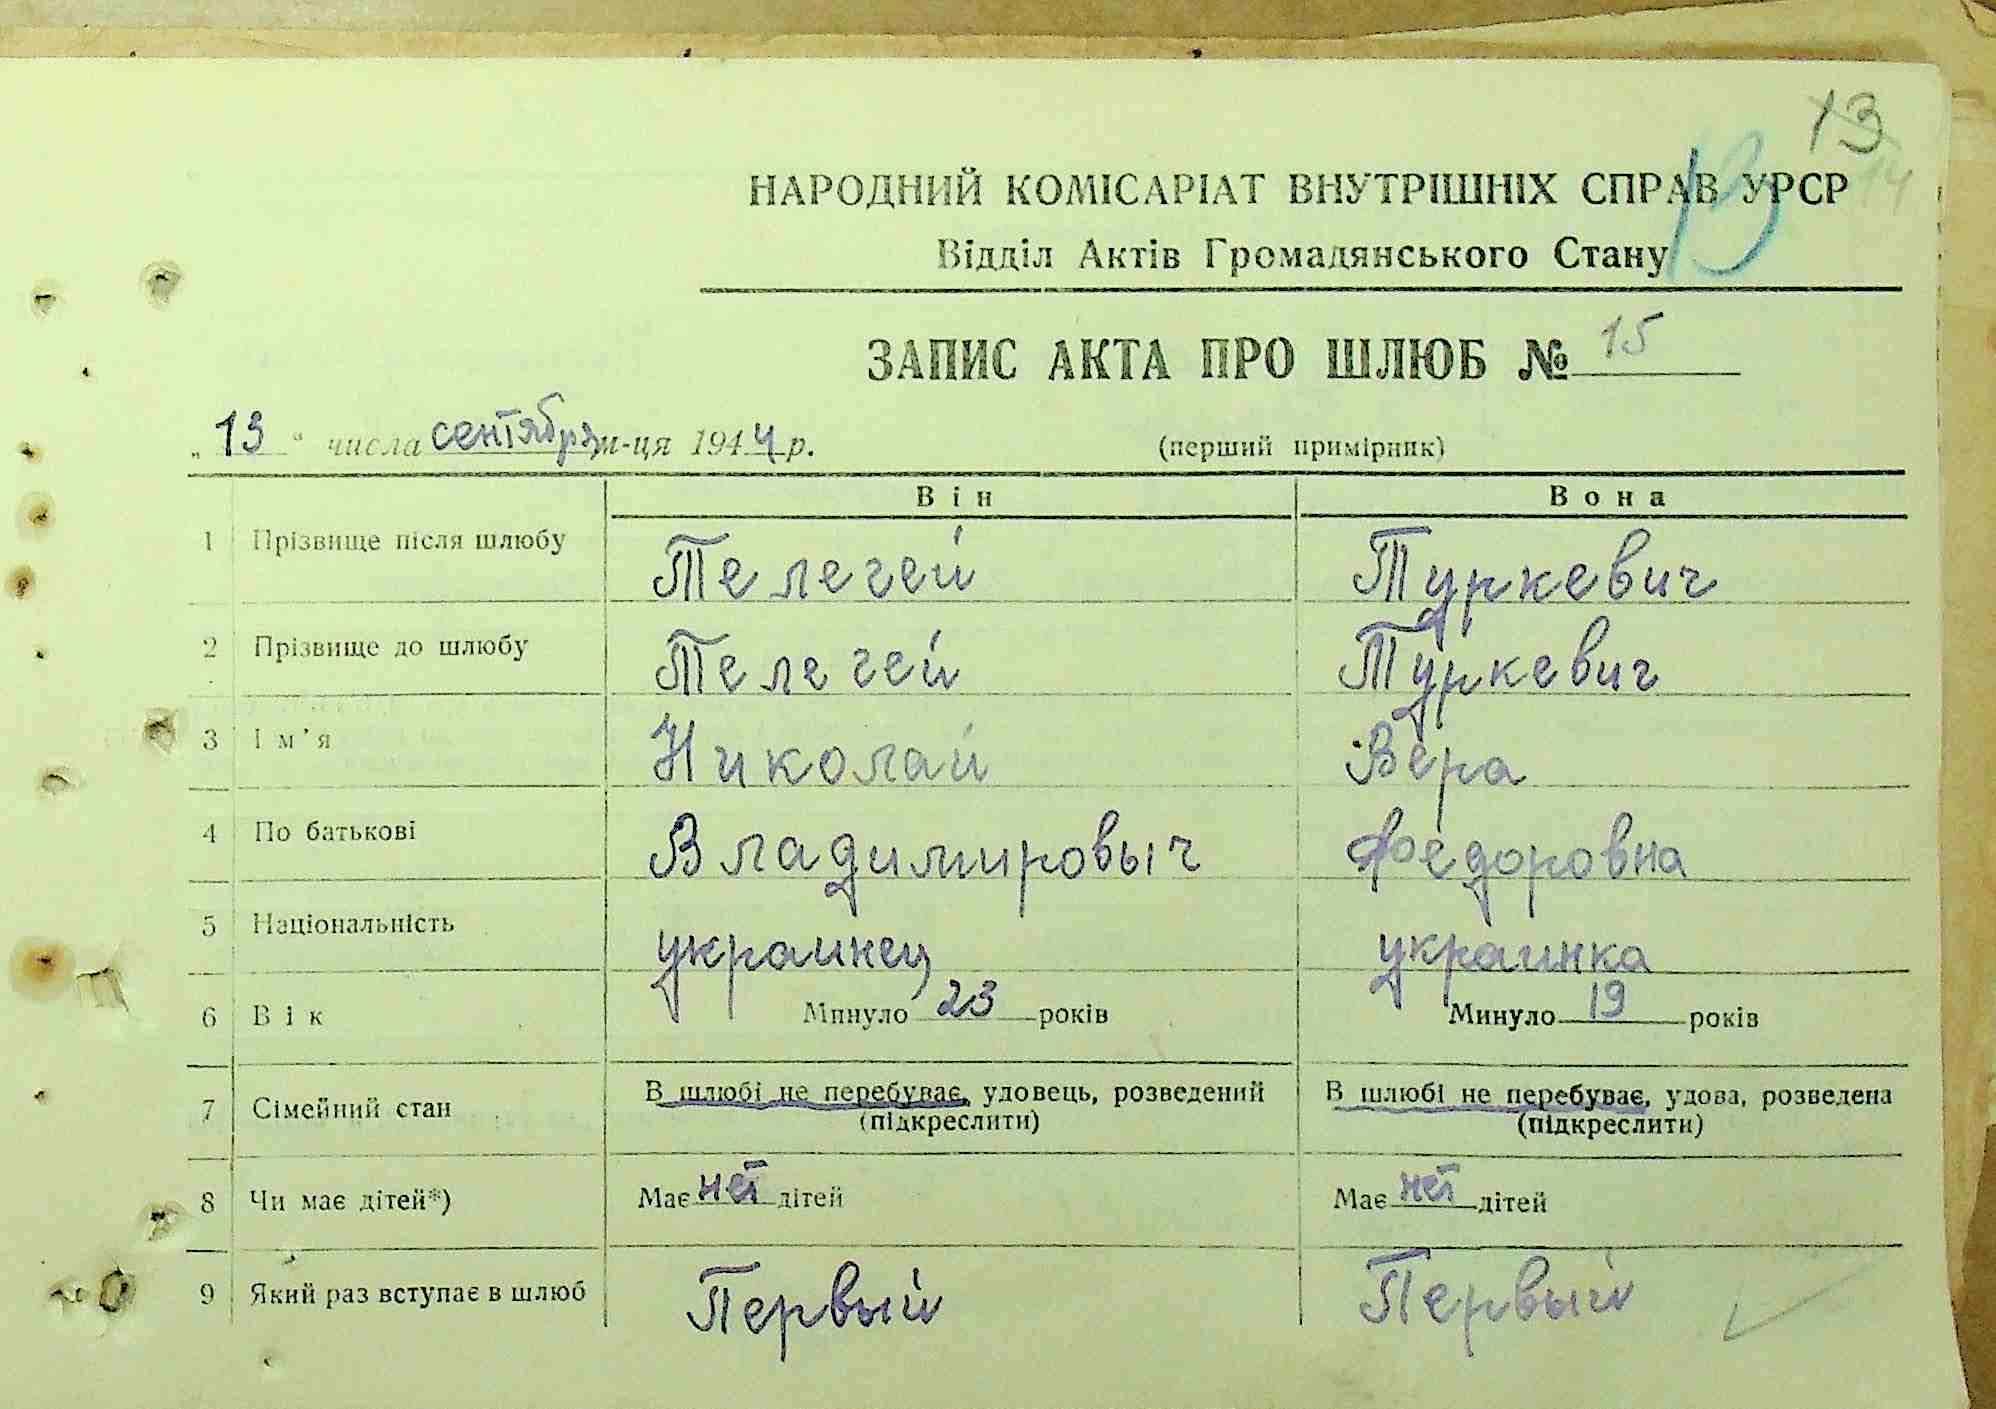 13
14
13
НАРОДНИЙ КОМІСАРІАТ ВНУТРІШНІХ СПРАВ УРСР
Відділ Актів Громадянського Стану
ЗАПИС АКТА ПРО ШЛЮБ № 15
„13“ числа сентября м-ця 1944 р. (перший примірник)
Він Вона
1 Прізвище після шлюбу Телегей Туркевич
2 Прізвище до шлюбу Телегей Туркевич
3 Ім'я Николай Вера
4 По батькові Владимировыч Федоровна
5 Національність украинец украинка
6 Вік Минуло 23 років Минуло 19 років
7 Сімейний стан В шлюбі не перебуває, удовець, розведений В шлюбі не перебуває, удова, розведена
(підкреслити) (підкреслити)
8 Чи має дітей*) Має нет дітей Має нет дітей
9 Який раз вступає в шлюб Первый Первый